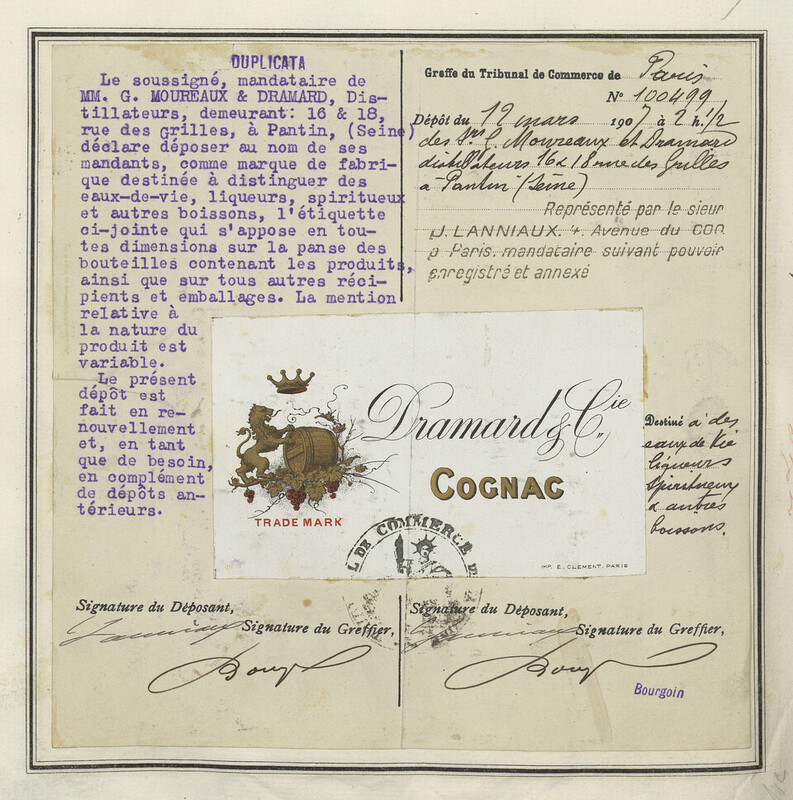 DUPLICATA
Le soussigné, mandataire de
MM. G. MOUREAUX & DRAMARD, Dis-
tillateurs, demeurant: 16 & 18,
rue des Grilles, à Pantin, (Seine)
déclare déposer au nom de ses
mandants, comme marque de fabri-
que destinée à distinguer des
eaux-de-vie, liqueurs, spiritueux
et autres boissons, l'étiquette
ci-jointe qui s'appose en tou-
tes dimensions sur la panse des
bouteilles contenant les produits,
ainsi que sur tous autres réci-
pients et emballages. La mention
relative à
la nature du
produit est
variable.
Le présent
dépôt est
fait en re-
nouvellement
et, en tant
que de besoin,
en complément
de dépôts an-
térieurs.
Greffe du Tribunal de Commerce de Paris
No 100499
Dépôt du 12 mars 1907 à 2 h. 1/2
des Srs G. Moureaux et Dramard
distillateurs 16 & 18 rue des Grilles
à Pantin (Seine)
Représenté par le sieur
J. LANNIAUX. 4. Avenue du COQ
a Paris. mandataire suivant pouvoir
enregistré et annexé
Dramard & Cie
COGNAC
TRADE MARK
IMP. E. CLEMENT. PARIS
Destiné à des
eaux de Vie
liqueurs
Spiritueux
& autres
boissons.
L DE COMMERCE D
Signature du Déposant,
Signature du Greffier,
Signature du Déposant,
Signature du Greffier,
Bourgoin